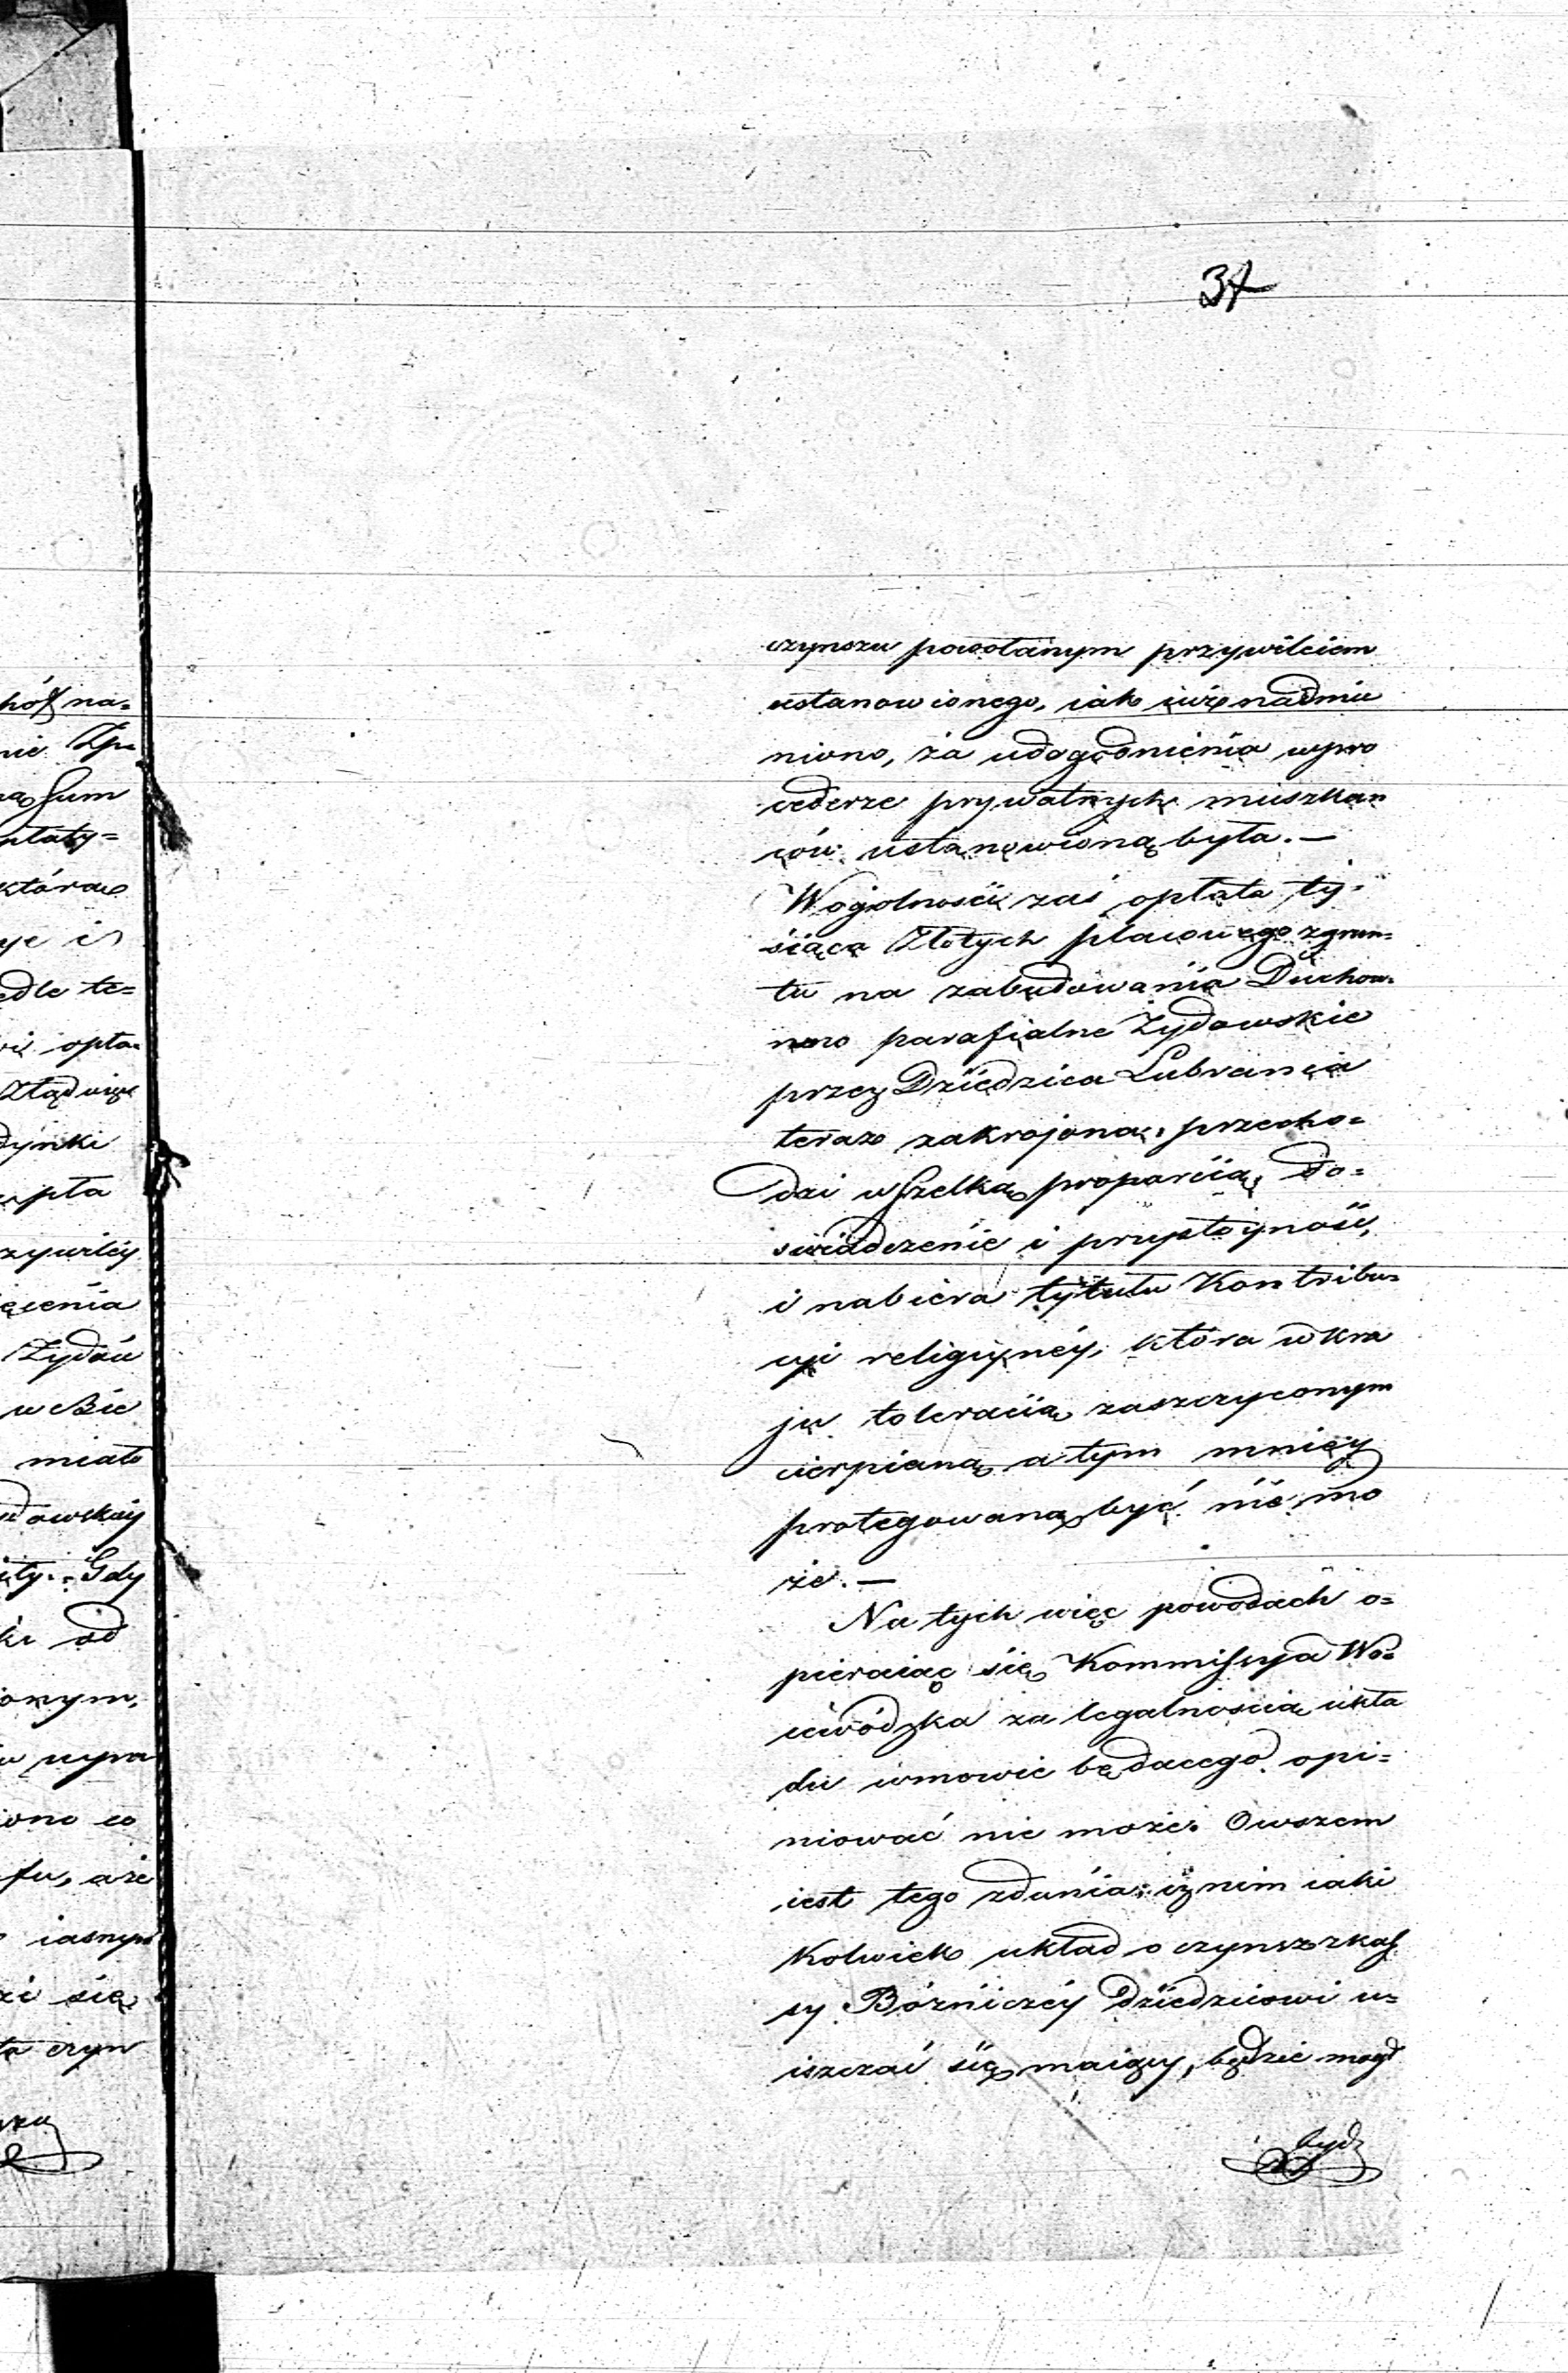 37
czynszu powołanym przywileiem
ustanowionego, iak iuż nadmie
niono, za udogodnienia w pro
cederze prywatnych mieszkań
ców ustanowioną była. —
W ogólności zaś opłata ty=
siąca Złotych placowego z grun=
tu na zabudowania Duchow=
no parafialne Żydowskie
przez Dziedzica Lubrańca
teraz zakrojona, przecho=
dzi wszelką proporcią, do=
świadczenie i przystoyność,
i nabiera tytułu Kontribu=
cyi religiyney, która w kra
ju toleracią zaszczyconym
cierpianą a tym mniey
protegowaną być nie mo
że. —
Na tych więc powodach o=
pieraiąc się Kommissyja Wo=
iewódzka za legalnością ukła
du w mowie będącego opi=
niować nie może. Owszem
iest tego zdania, iż nim iaki
kolwiek układ o czynsz z kas
sy Bożniczéy Dziedzicowi u=
iszczać się maiący, będzie mógł
bydź
na=
Sum
którą
edle te=
opła=
dynki
Żydów
miało
Gdy
od
iż
się
czyn